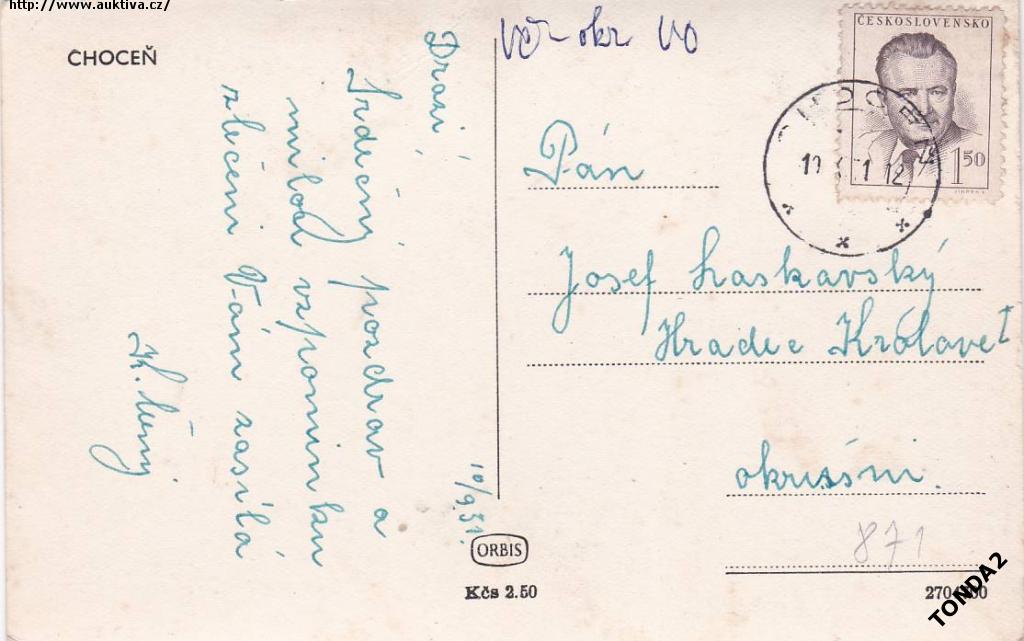 http://www.auktiva.cz/
CHOCEŇ
Drazí,
Srdečný pozdrav a
milou vzpomínku
z léčení Vám zasílá
10/9.51.
okr
VO
ČESKOSLOVENSKO
1 50
CHOCEŇ
Pán
Josef Laskavský
Hradec Králové I
okresní.
871
ORBIS
Kčs 2.50
TONDA2